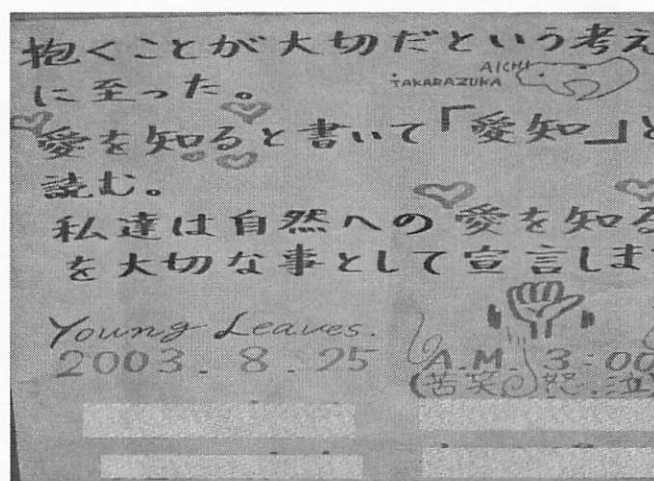 抱くことが大切だという考え
に至った。
AICHI
TAKARAZUKA
愛を知ると書いて「愛知」と
読む。
私達は自然への愛を知る
を大切な事として宣言しま
Young Leaves.
2003. 8. 25
A.M. 3:00
(苦笑 怒.泣)